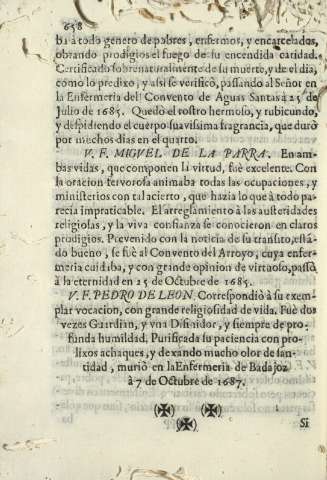 658
ba à todo genero de pobres, enfermos, y encarcelados,
obrando prodigios el fuego de su encendida caridad.
Certificado sobrenaturalmente de su muerte, y de el dia,
como lo predixo, y assi se verificò, passando al Señor en
la Enfermeria del Convento de Aguas Santas à 25 de
Julio de 1685. Quedò el rostro hermoso, y rubicundo,
y despidiendo el cuerpo suavissima fragrancia, que durò
por muchos dias en el quarto.
V. F. MIGVEL DE LA PARRA. En am-
bas vidas, que componen la virtud, fuè excelente. Con
la oracion fervorosa animaba todas las ocupaciones, y
ministerios con tal acierto, que hazia lo que à todo pa-
recia impraticable. El arreglamiento à las austeridades
religiosas, y la viva confianza se conocieron en claros
prodigios. Prevenido con la noticia de su transito, està-
do bueno, se fuè al Convento del Arroyo, cuya enfer-
meria cuidaba, y con grande opinion de virtuoso, passò
à la eternidad en 25 de Octubre de 1685.
V. F. PEDRO DE LEON. Correspondiò à su exem-
plar vocacion, con grande religiosidad de vida. Fuè dos
vezes Guardian, y vna Difinidor, y siempre de pro-
funda humildad. Purificada su paciencia con pro-
lixos achaques, y dexando mucho olor de san-
tidad, muriò en la Enfermeria de Badajoz
à 7 de Octubre de 1687.
Si